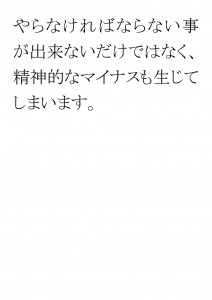 やらなければならない事
が出来ないだけではなく、
精神的なマイナスも生じて
しまいます。